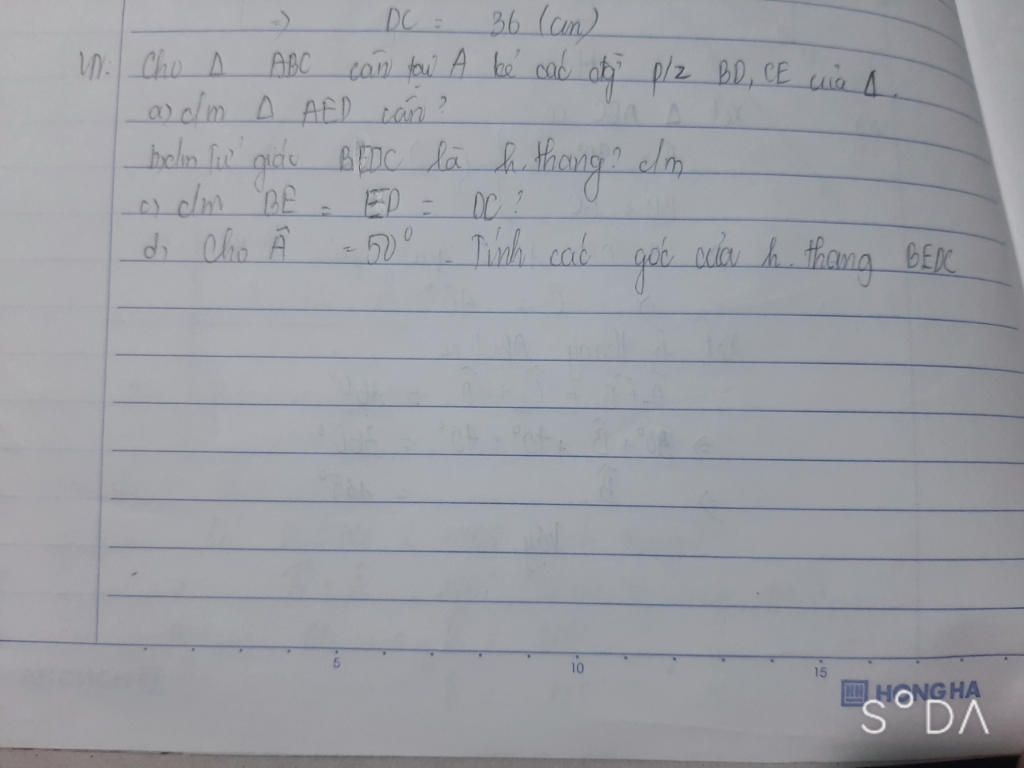 => DC = 36 (cm)
VN: Cho Δ ABC cân tại A kẻ các đg̃ p/z BD, CE của Δ.
a) c/m Δ AED cân?
b) c/m Tứ giác BEDC là h. thang? c/m
c) c/m BE = ED = DC?
d) Cho Â = 50° . Tính các góc của h. thang BEDC
5 10 15
HONG HA
SODA